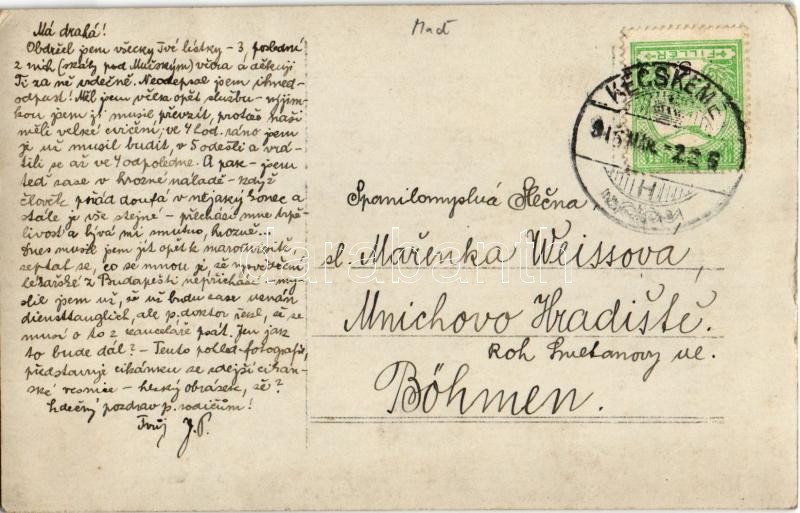 Mad
Má drahá!
Obdržel jsem všecky Tvé lístky – 3 poslední
z nich (skály pod Mužským) včera a děkuji
Ti za ně srdečně. Neodepsal jsem ihned –
odpusť! Měl jsem včera opět službu – výjim-
kou jsem ji musil převzít, protože naši
měli velké cvičení; ve 4 hod. ráno jsem
je už musil budit, v 5 odešli a vrá-
tili se až ve 4 odpoledne. A pak – jsem
teď zase v hrozné náladě – když
člověk pořád doufá v nějaký konec a
stále je vše stejné – přechází mne trpě-
livost a bývá mi smutno, hrozně...
Dnes musil jsem jít opět k marodvizitě,
zeptal se, co se mnou je, že vysvědčení
lékařské z Budapešti nepřichází – my-
slil jsem už, že už budu zase uznán
diensttauglich, ale p. doktor řekl, že se
musí o to z kanceláře psát. Jen jak
to bude dál? – Tento pohled-fotografie,
představuje cikánku ze zdejší cikán-
ské vesnice – hezký obrázek, že?
Srdečný pozdrav p. rodičům!
Tvůj J.P.
FILLÉR
KECSKEMÉT
915 MÁR. – 22 6
Spanilomyslná Slečna,
sl. Mařenka Weissová,
Mnichovo Hradiště.
Roh Smetanovy ul.
Böhmen.
darabanth